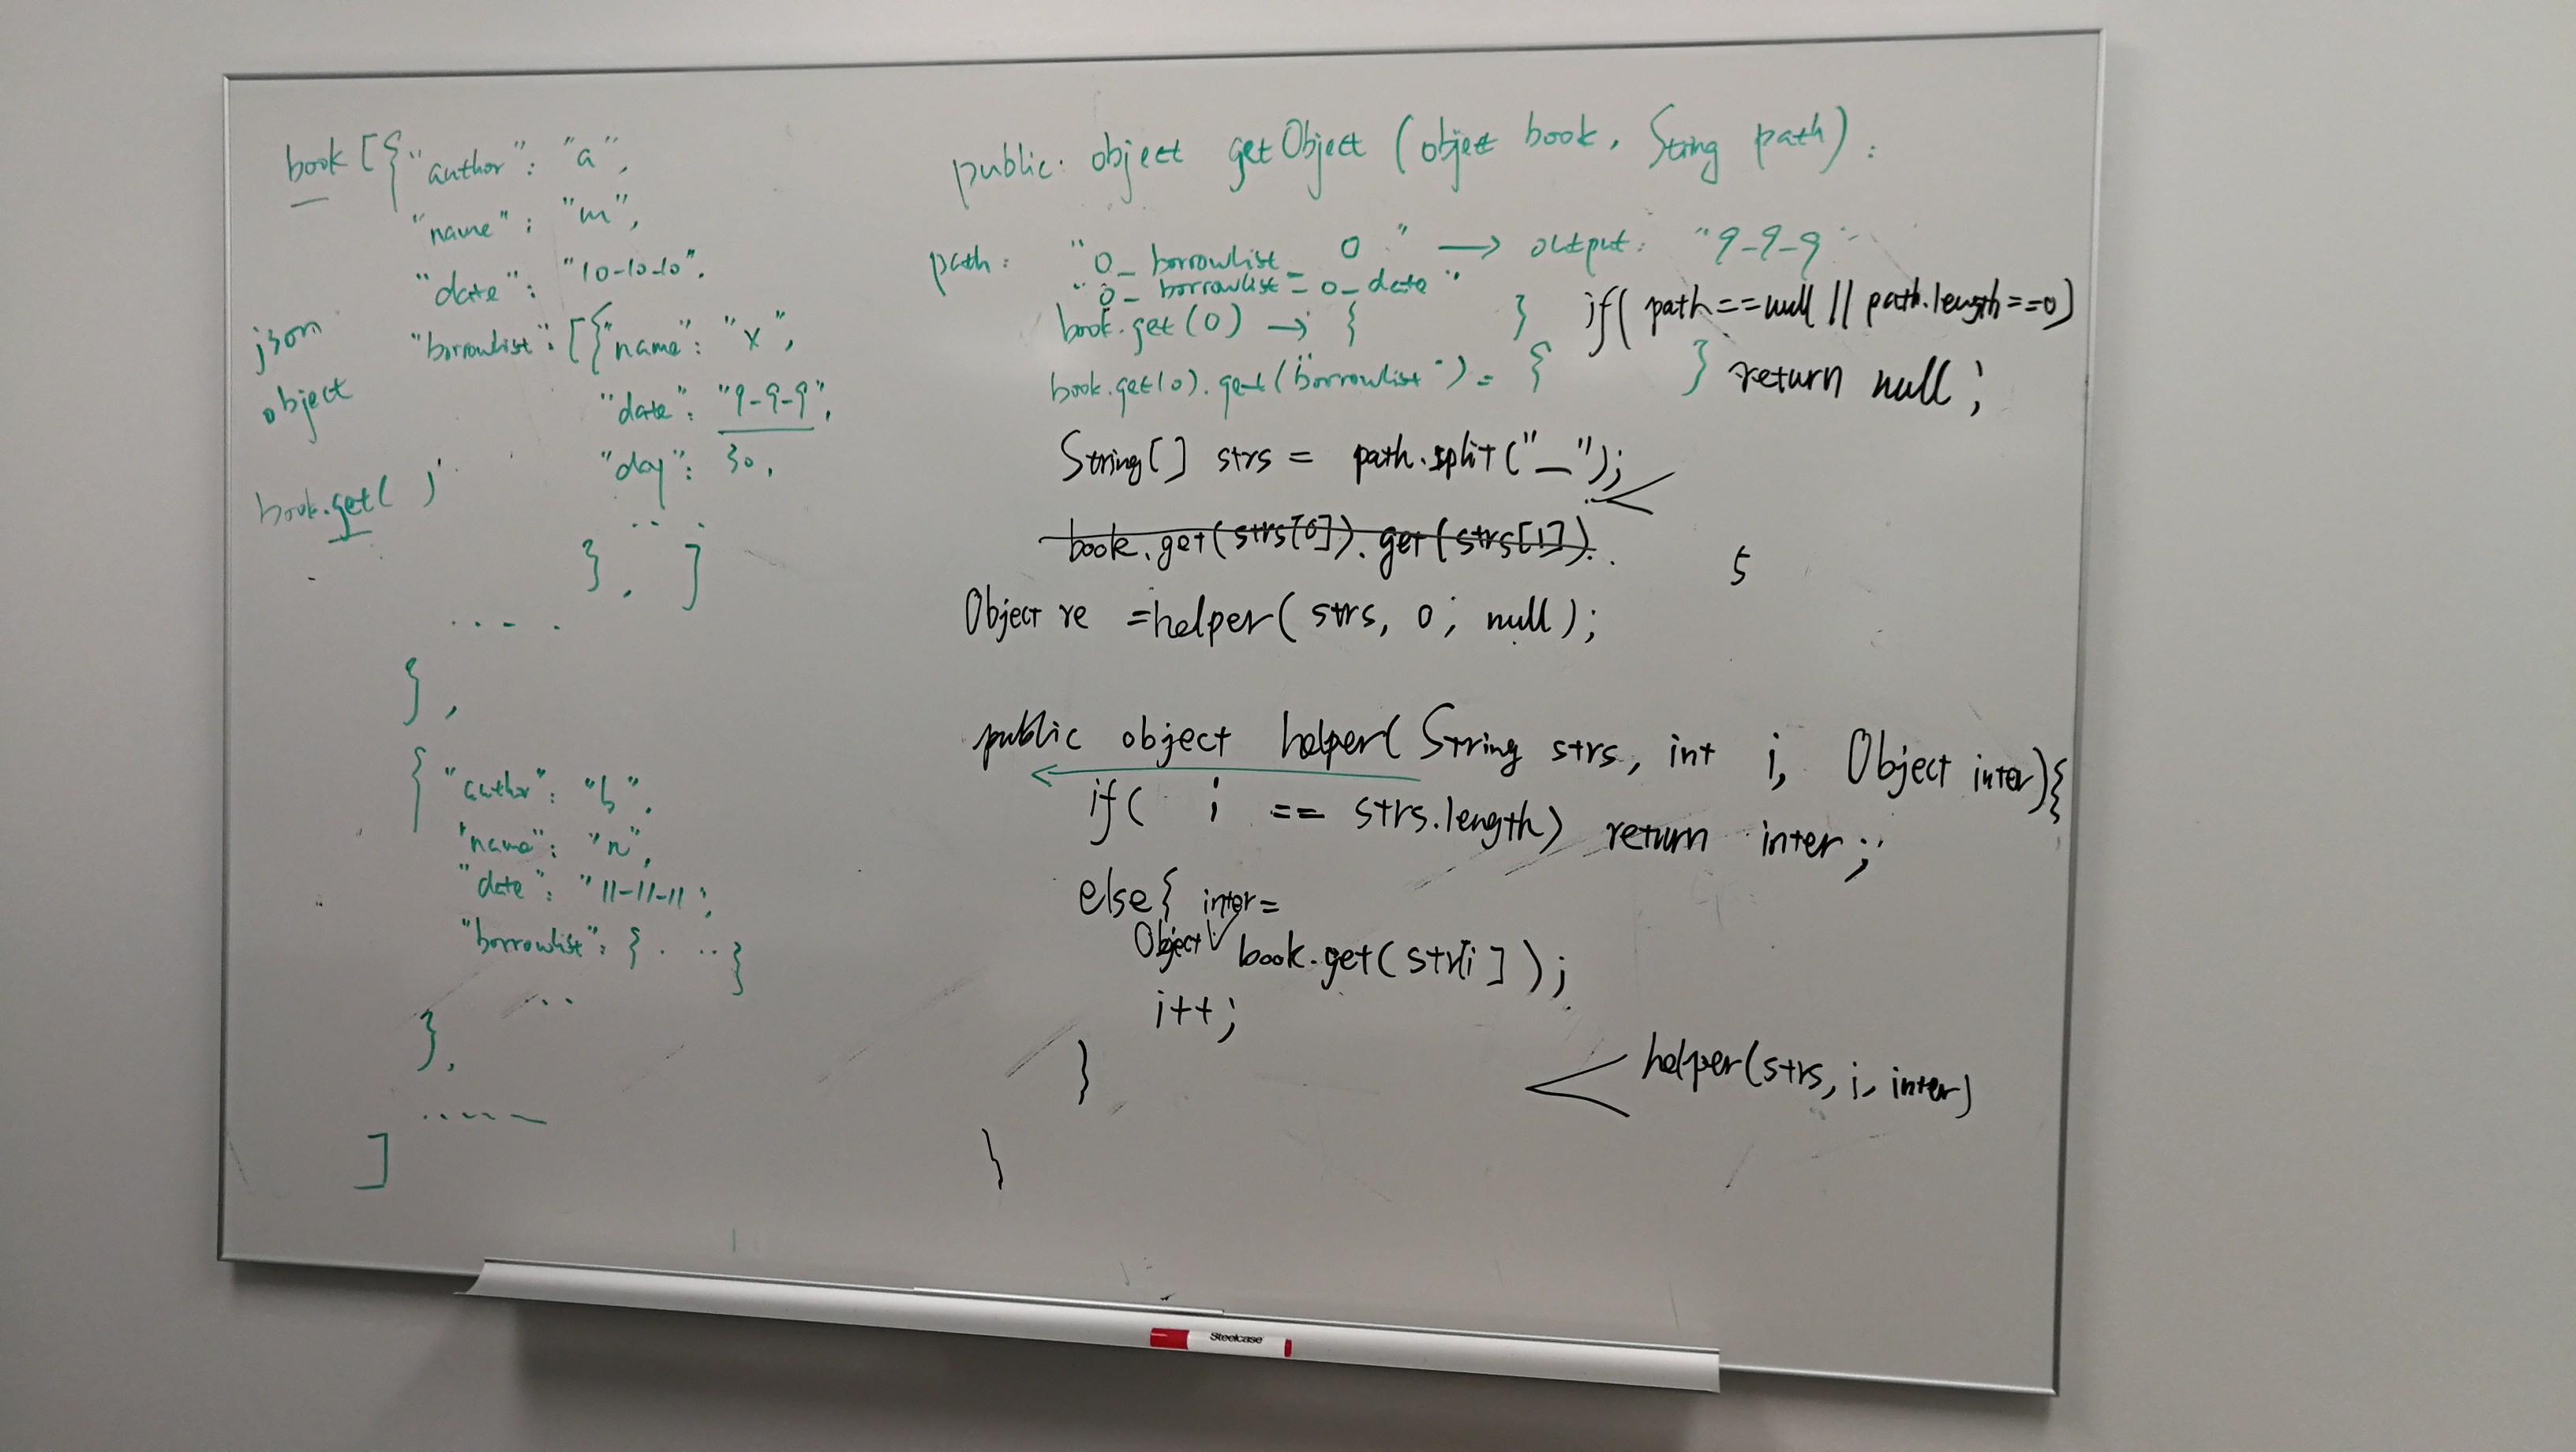 book [{ "author": "a",
"name": "m",
"date": "10-10-10",
"borrowlist": [{ "name": "x",
"date": "9-9-9",
"day": 30,
.. .
}, ]
.... .
},
{ "author": "b",
"name": "n",
"date": "11-11-11",
"borrowlist": { . .. }
...
},
.....
]
json
object
book.get( )
public object getObject (object book, String path) :
path: "0_ borrowlist 0 " → output: "9-9-9"
"0_ borrowlist _ 0_ date"
book.get(0) → { }
book.get(0).get("borrowlist") = { }
if( path==null || path.length==0)
return null;
String[] strs = path.split("_");
book.get(strs[0]).get(strs[1]).
5
Object re =helper( strs, 0, null);
public object helper( String strs, int i, Object inter){
if( i == strs.length) return inter;
else{ inter=
Object book.get(str[i]);
i++;
}
helper(strs, i, inter)
}
Steelcase